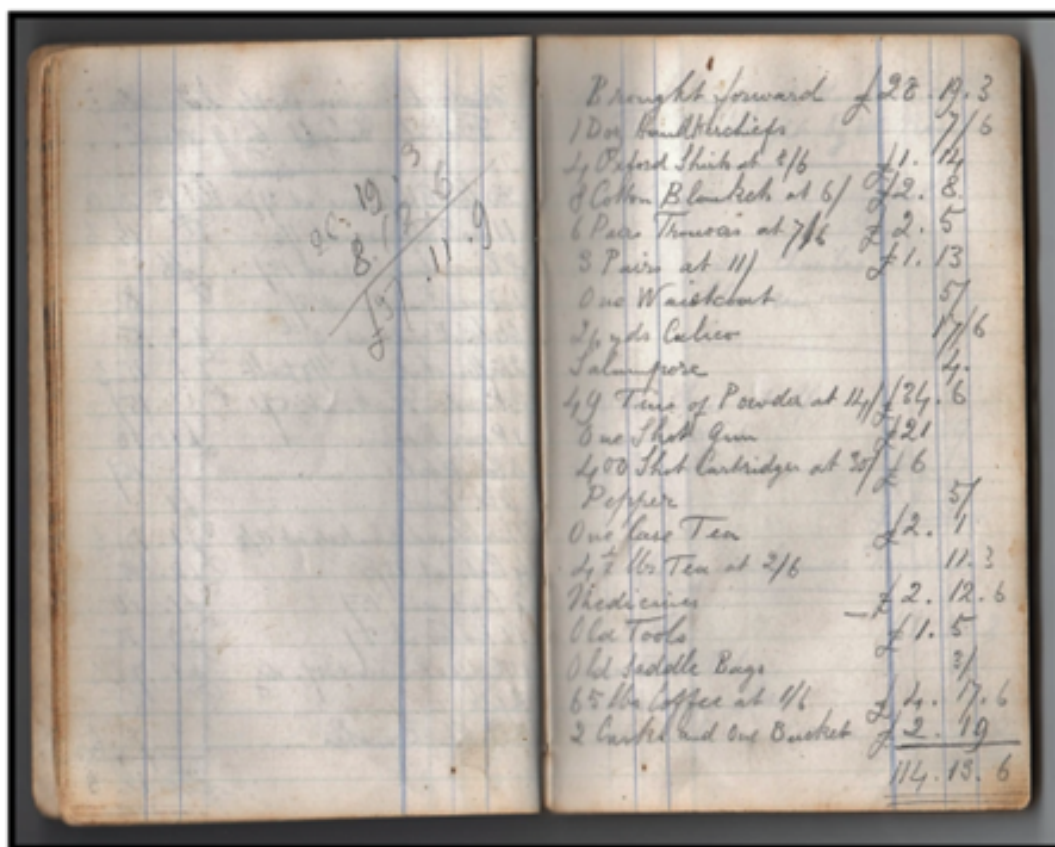 28. 19. 3
8. 12. 6
£37. 11. 9
Brought forward £28. 19. 3
1 Doz Handkerchiefs 7/6
4 Oxford Shirts at 8/6 £1. 14
8 Cotton Blankets at 6/ £2. 8.
6 Pairs Trousers at 7/6 £2. 5
3 Pairs at 11/ £1. 13
One Waistcoat 5/
24 yds Calico 17/6
Salampore 4.
49 Tins of Powder at 14/ £34. 6
One Shot Gun £21
400 Shot Cartridges at 30/ £6
Pepper 5/
One Case Tea £2. 1
4½ lbs Tea at 2/6 11.3
Medicines £2. 12. 6
Old Tools £1. 5
Old Saddle Bags 3/
65 lbs Coffee at 1/6 £4. 17. 6
2 Casks and One Bucket £2. 19
114. 13. 6